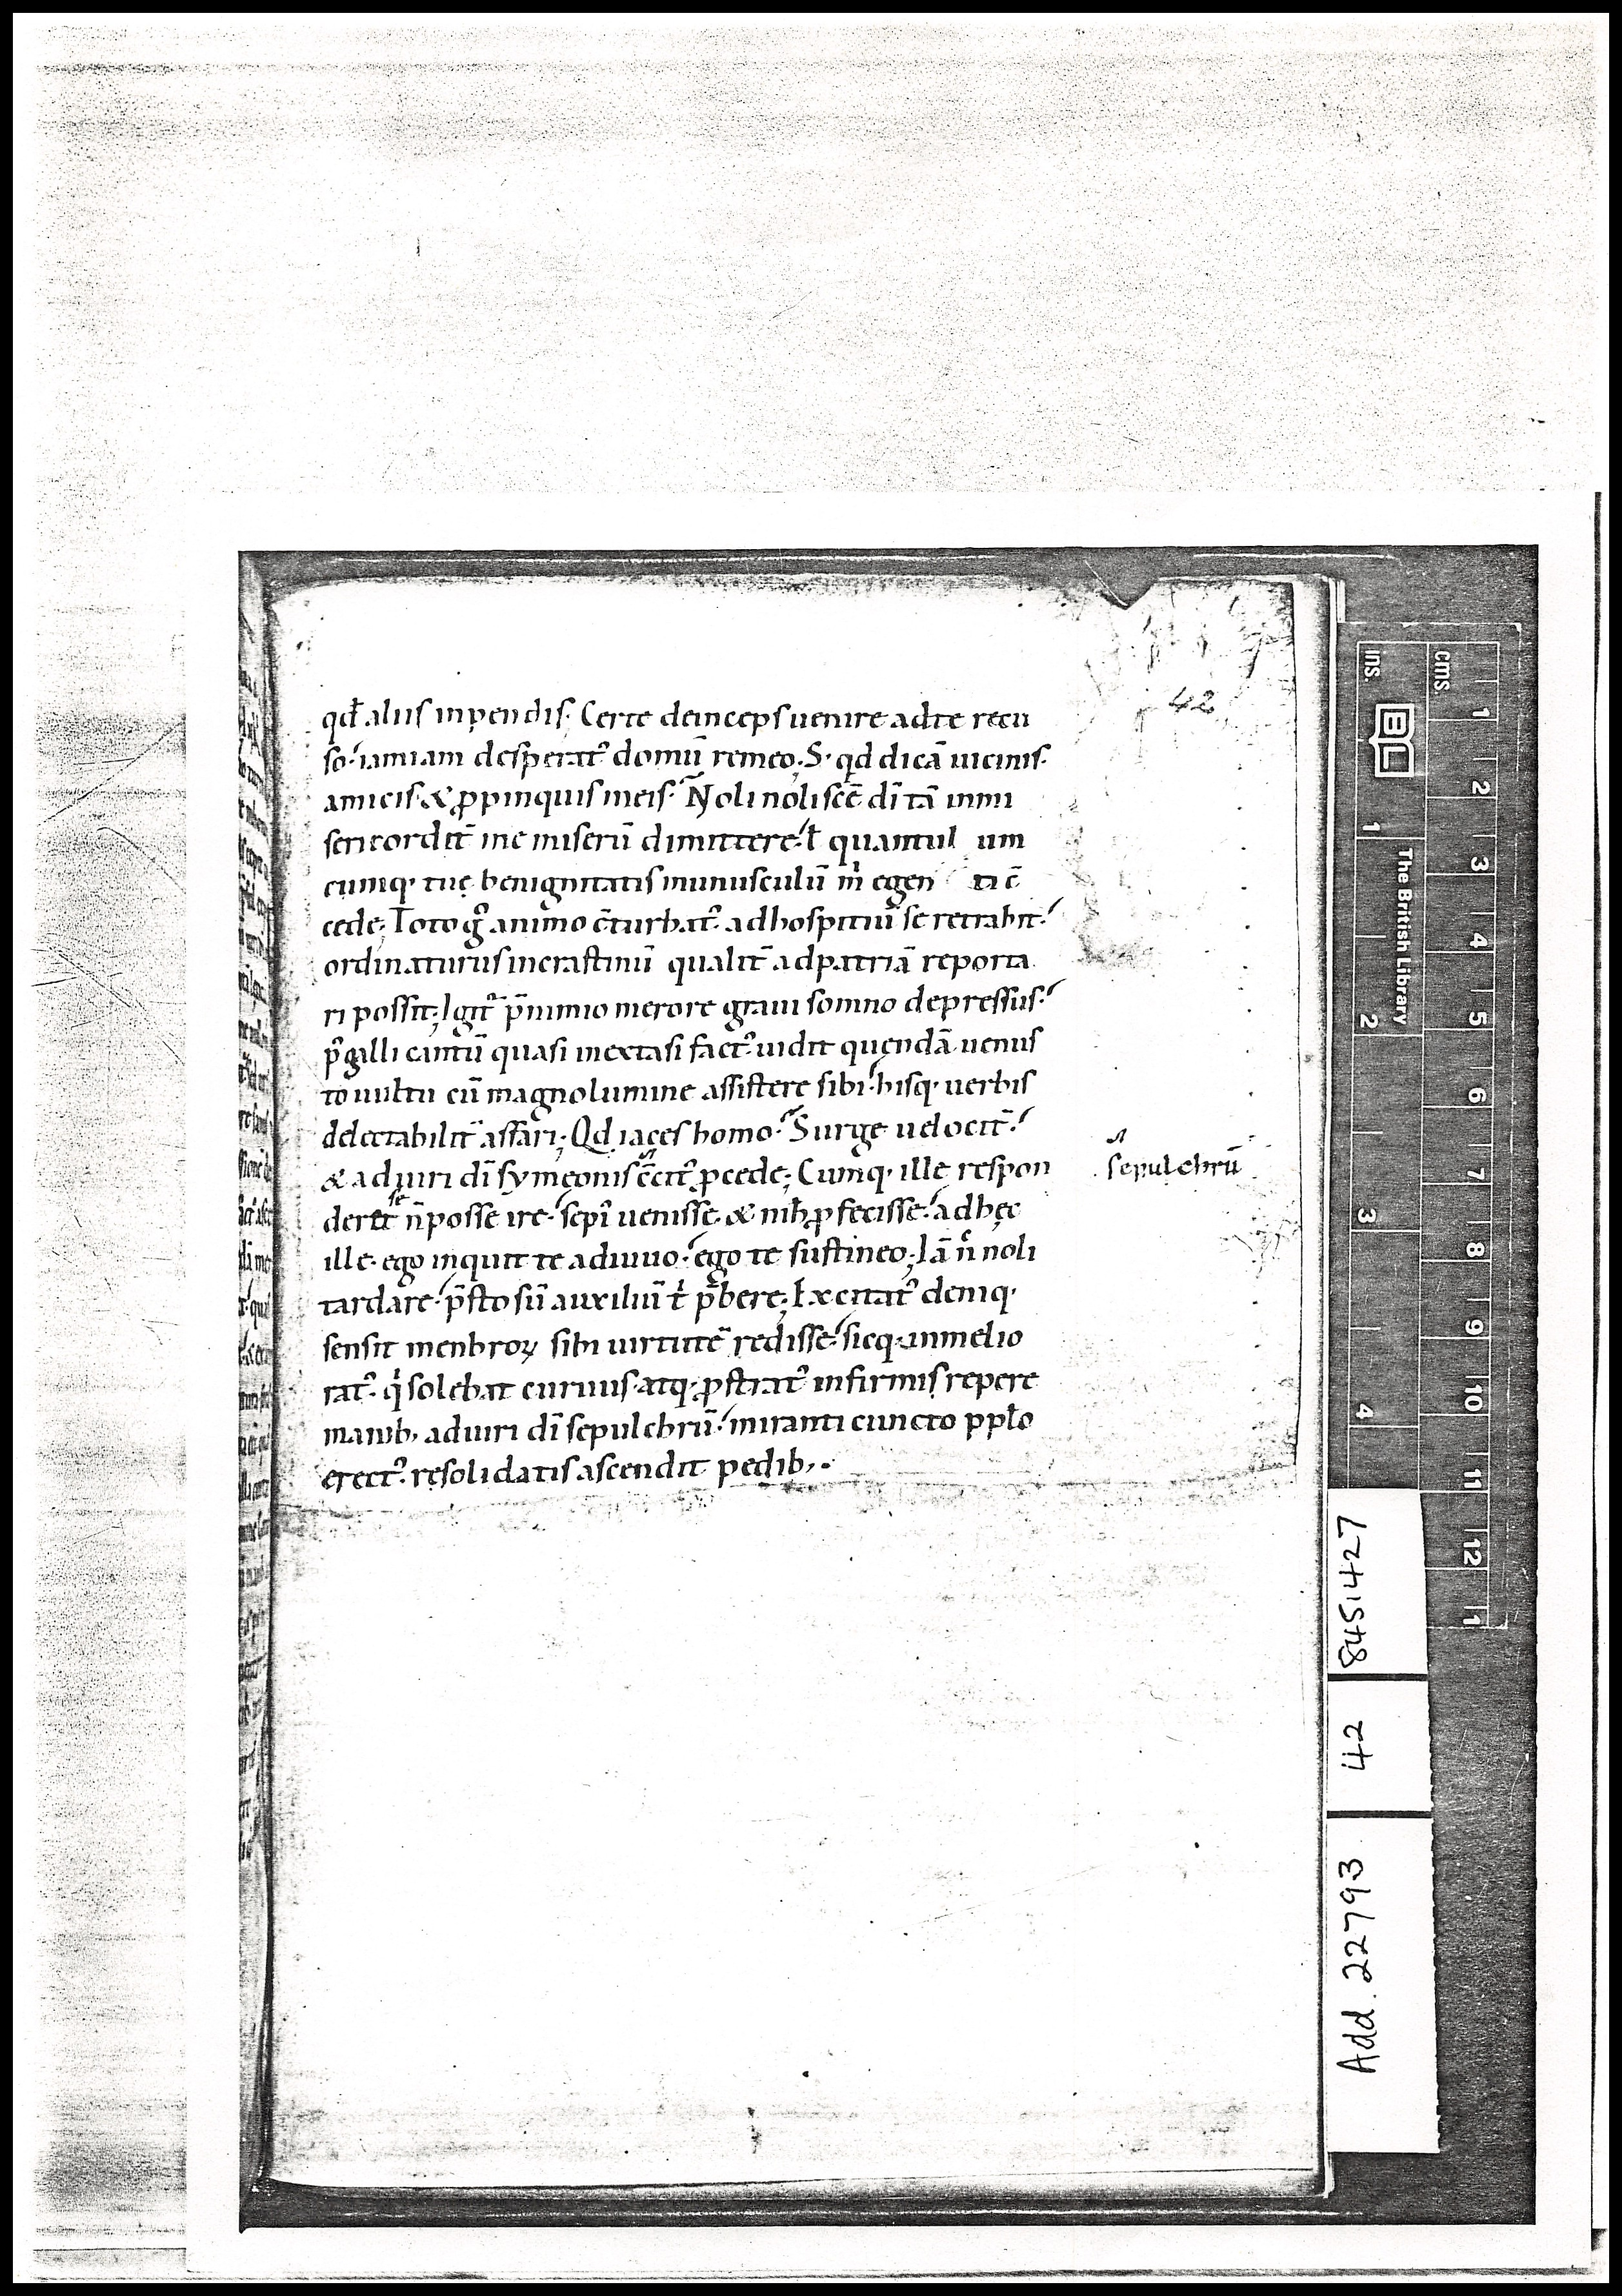 42
qđ aliis inpendis. Certe deinceps uenire ad te recu
so. iamiam desperat᷒ domū remeo. S. qd dicā uicinis.
amicis & ꝓpinquis meis. Noli noli scē dī tā inmi
sericordit̄ me miserū dimittere. ł quantul um
cumq. tuę benignitatis munusculū m̄ egen ti c̄
cede; Toto g̊ animo c̄turbat᷒. ad hospitiū se retrahit.
ordinaturus in crastinū qualit̄ ad patriā reporta
ri possit; Igit᷒ p̄ nimio merore graui somno depressus.
p̊ galli cantū quasi in extasi fact᷒. uidit quendā uenus
to uultu cū magno lumine assistere sibi. hisq. uerbis
delectabilit̄ affari; Qd iaces homo. Surge uelocit̄.
& ad uiri dī symeonis c̄cit᷒ ꝓcede; Cumq. ille respon
deret se n̄ posse ire. sepī uenisse & nih̄ ꝓfecisse. ad hęc
ille. ego inquit te adiuuo. ego te sustineo; Iā n̄ noli
tardare. p̄sto sū auxiliū t̄ p̄bere; Excitat᷒ deniq.
sensit menbroꝝ sibi uirtutē redisse. sicq. inmelio
rat᷒. q̇ solebat curuus atq. ꝓstrat᷒ infirmis repere
manib, ad uiri dī sepulchrū. miranti cuncto pplo
erect᷒. resolidatis ascendit pedib,.
sepulchrū
cms
1
2
3
4
5
6
7
8
9
10
11
12
1
ins.
1
2
3
4
BL
The British Library
8451427
42
Add. 22793